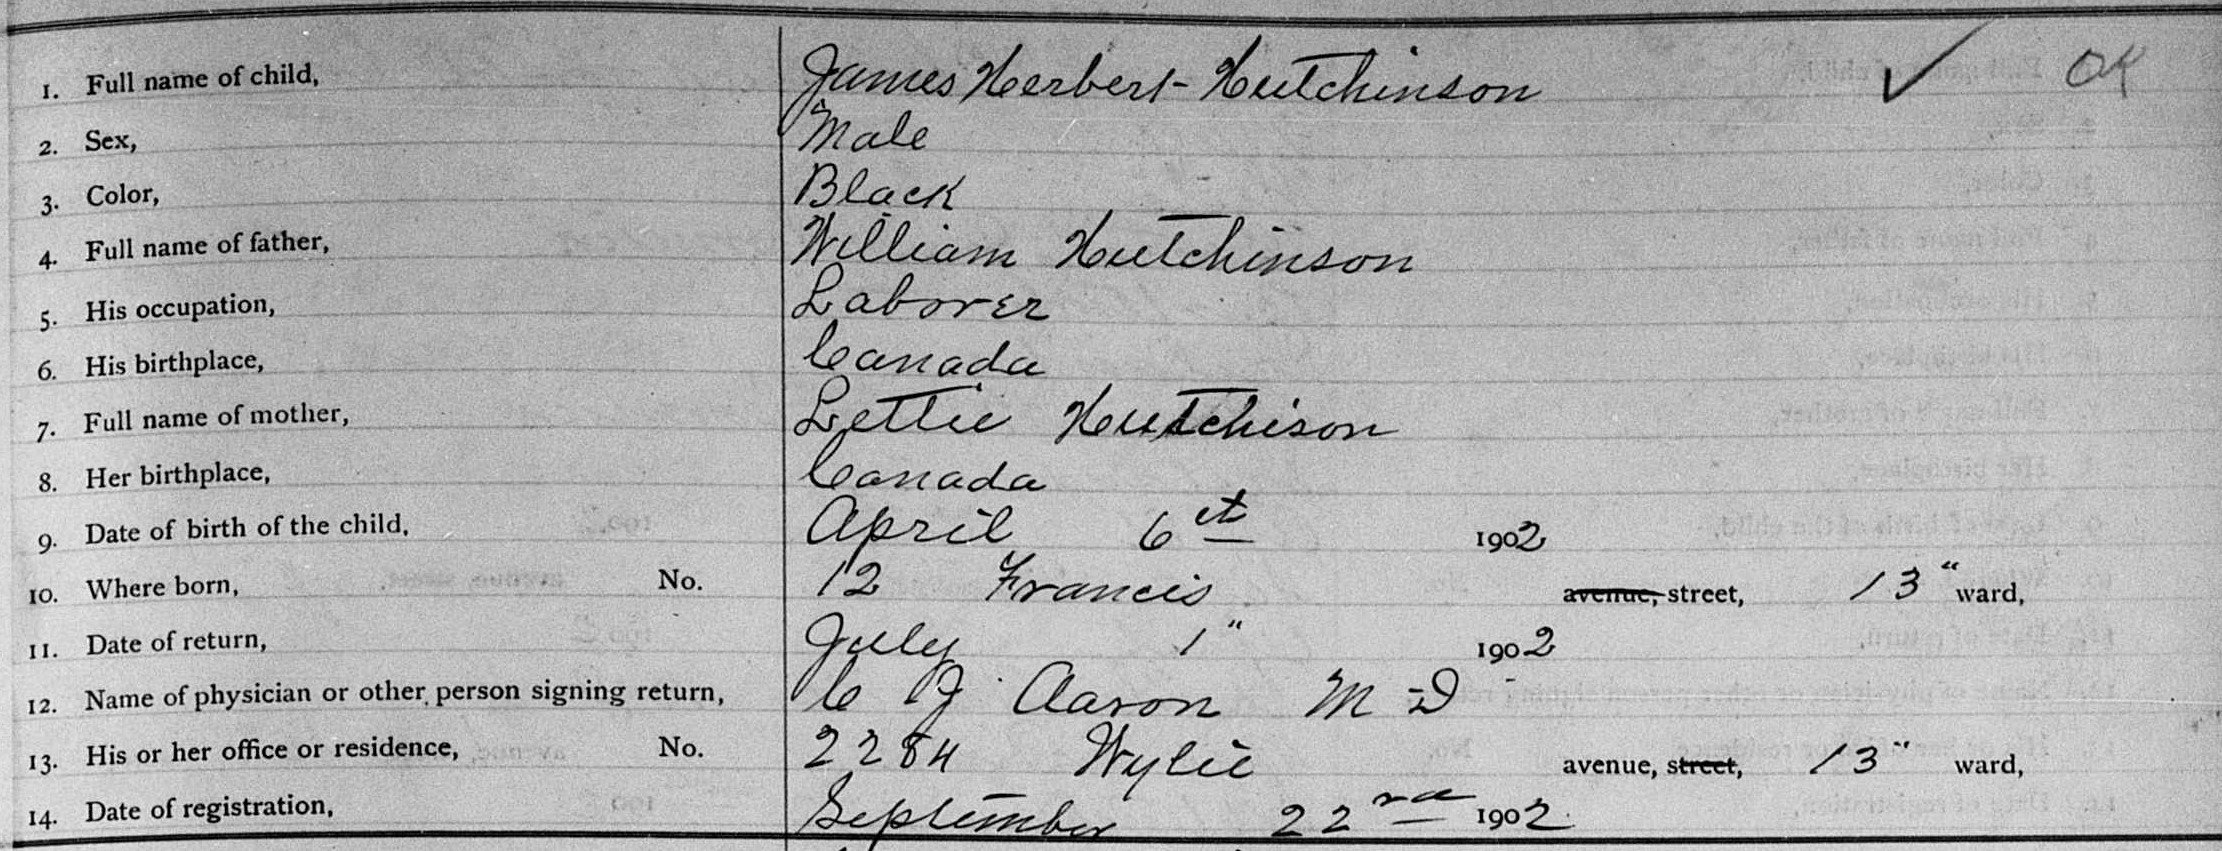 1. Full name of child, James Herbert- Hutchinson ✓ OK
2. Sex, Male
3. Color, Black
4. Full name of father, William Hutchinson
5. His occupation, Laborer
6. His birthplace, Canada
7. Full name of mother, Lettie Hutchison
8. Her birthplace, Canada
9. Date of birth of the child, April 6th 1902
10. Where born, No. 12 Francis avenue, street, 13" ward,
11. Date of return, July 1" 1902
12. Name of physician or other person signing return, C J Aaron M D
13. His or her office or residence, No. 2284 Wylie avenue, street, 13" ward,
14. Date of registration, September 22nd 1902